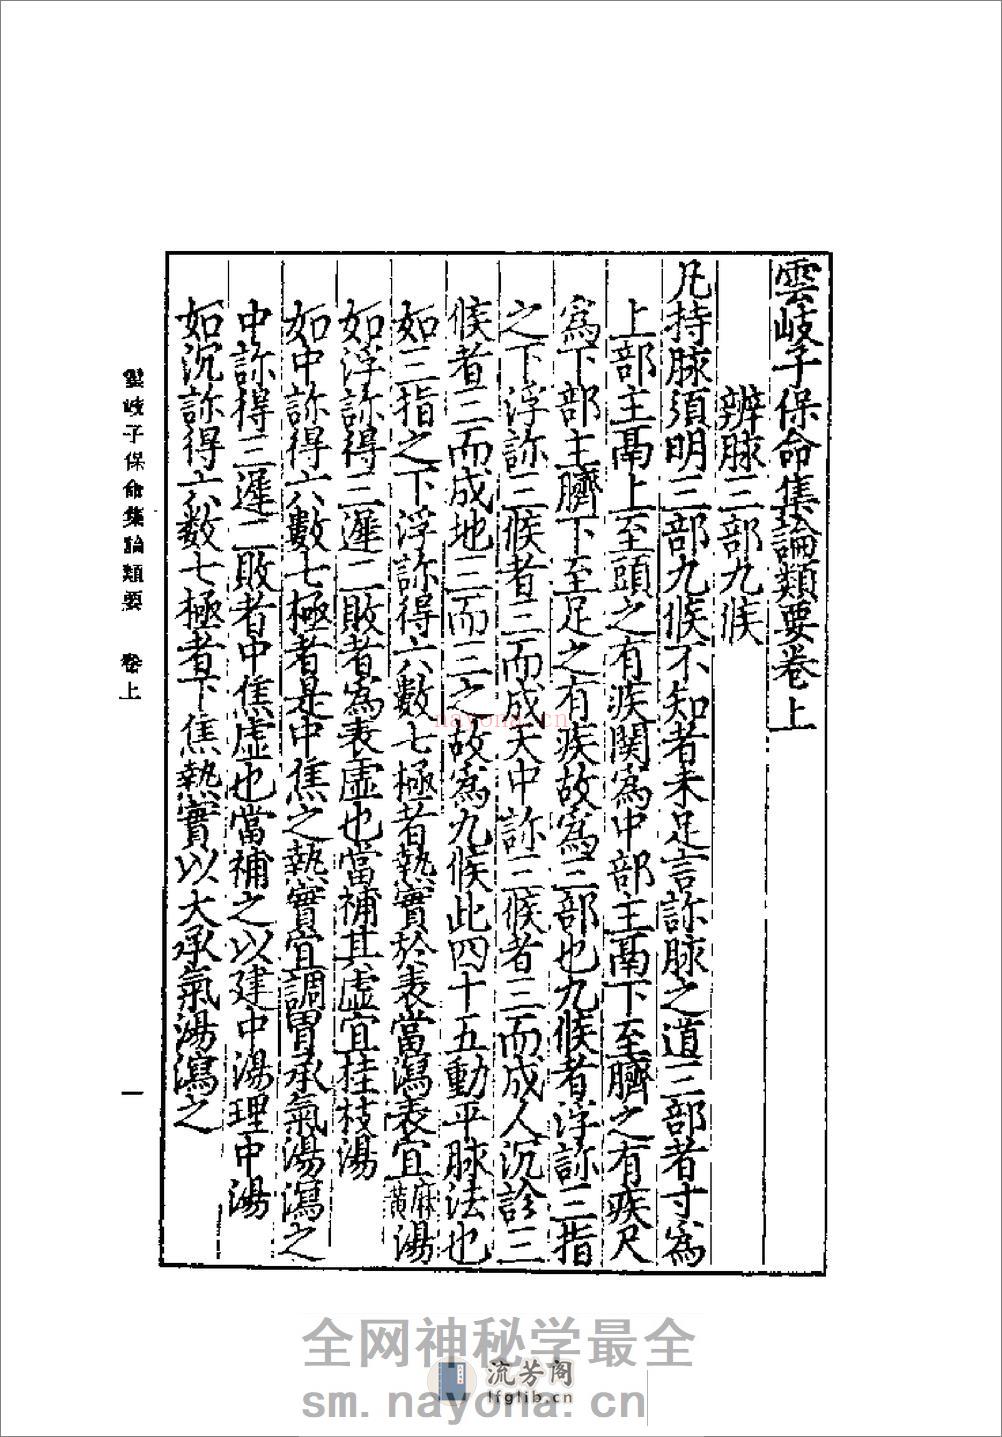 雲岐子保命集論類要卷上
辨脉三部九候
凡持脉須明三部九候不知者未足言診脉之道三部者寸爲
上部主鬲上至頭之有疾関爲中部主鬲下至臍之有疾尺
爲下部主臍下至足之有疾故爲三部也九候者浮診三指
之下浮診三候者三而成天中診三候者三而成人沉診三
候者三而成地三而三之故爲九候此四十五動平脉法也
如三指之下浮診得六數七極者熱實於表當瀉表宜麻黄湯
如浮診得三遲二敗者爲表虛也當補其虛宜桂枝湯
如中診得六數七極者是中焦之熱實宜調胃承氣湯瀉之
中診得三遲二敗者中焦虛也當補之以建中湯理中湯
如沉診得六数七極者下焦熱實以大承氣湯瀉之
雲岐子保命集論類要 卷上
一
nayona.cn
全网神秘学最全
流芳阁
lfglib.cn
sm.nayona.cn